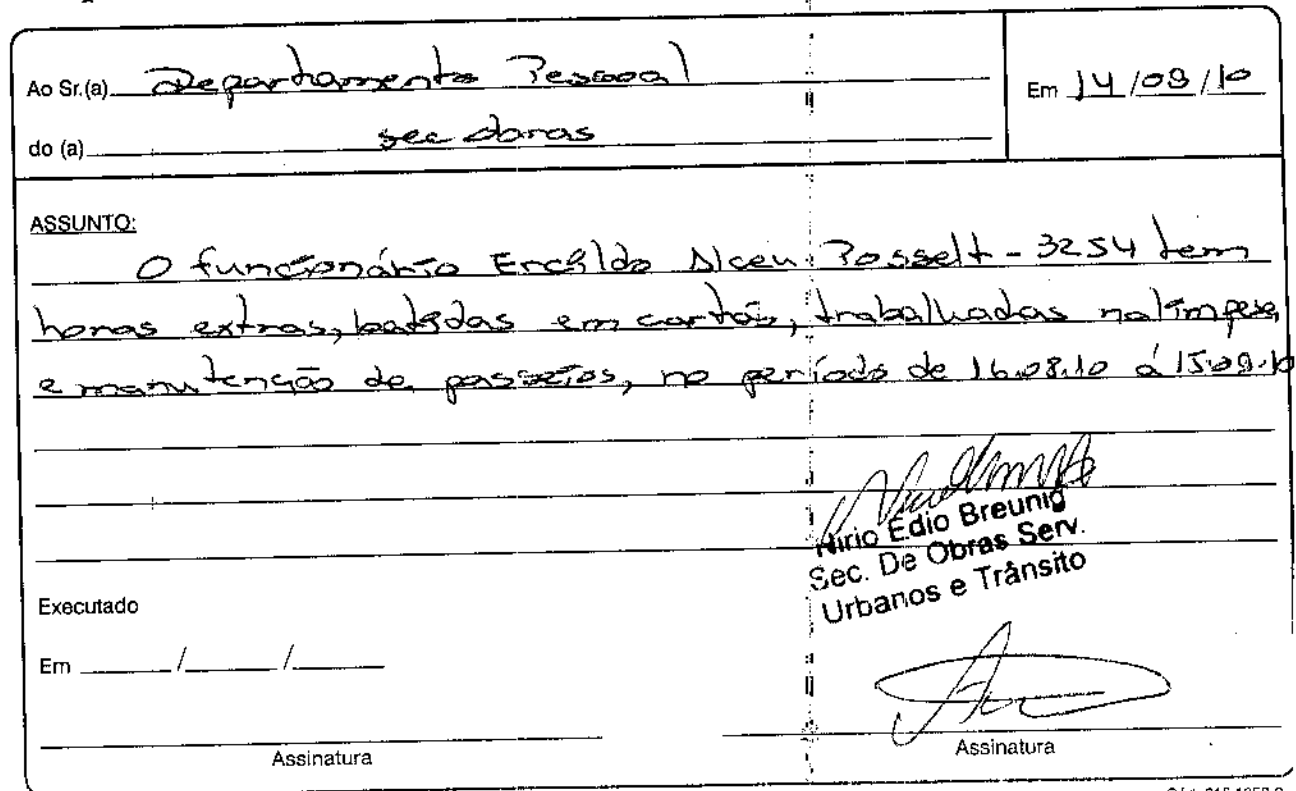 Ao Sr.(a) Departamento Pessoal
Em 14/09/10
do (a) sec obras
ASSUNTO:
O funcionário Enildo Alceu Posselt - 3254 tem
horas extras, batidas em cartão, trabalhadas na limpesa
e manutenção de passeios, no período de 16.08.10 á 15.09.10
Nirio Edio Breunig
Sec. De Obras Serv.
Urbanos e Trânsito
Executado
Em / /
Assinatura
Assinatura